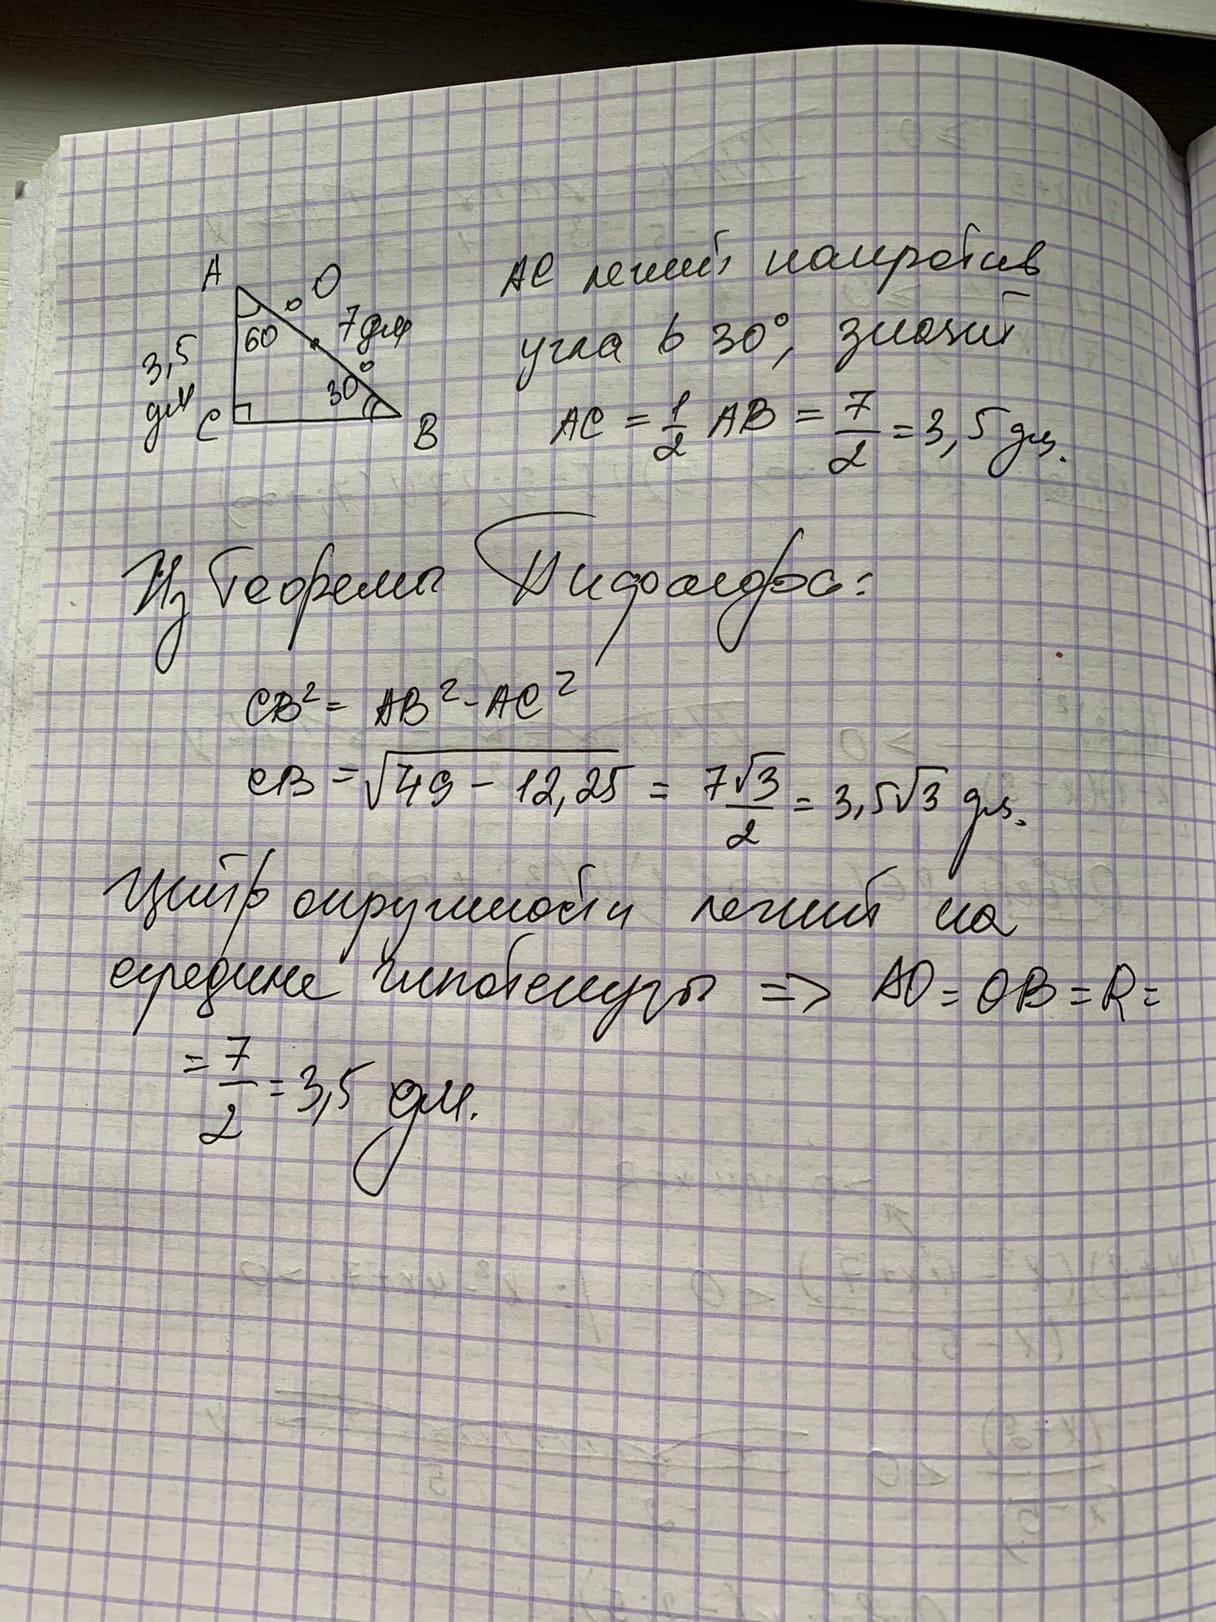 A O
60° 7 дм
3,5 дм
30°
C B
AC лежит напротив
угла в 30°, значит
AC = 1/2 AB = 7/2 = 3,5 дм.
Из Теоремы Пифагора:
CB² = AB² - AC²
CB = √(49 - 12,25) = 7√3/2 = 3,5√3 дм.
Центр окружности лежит на
середине гипотенузы => AO = OB = R =
= 7/2 = 3,5 дм.